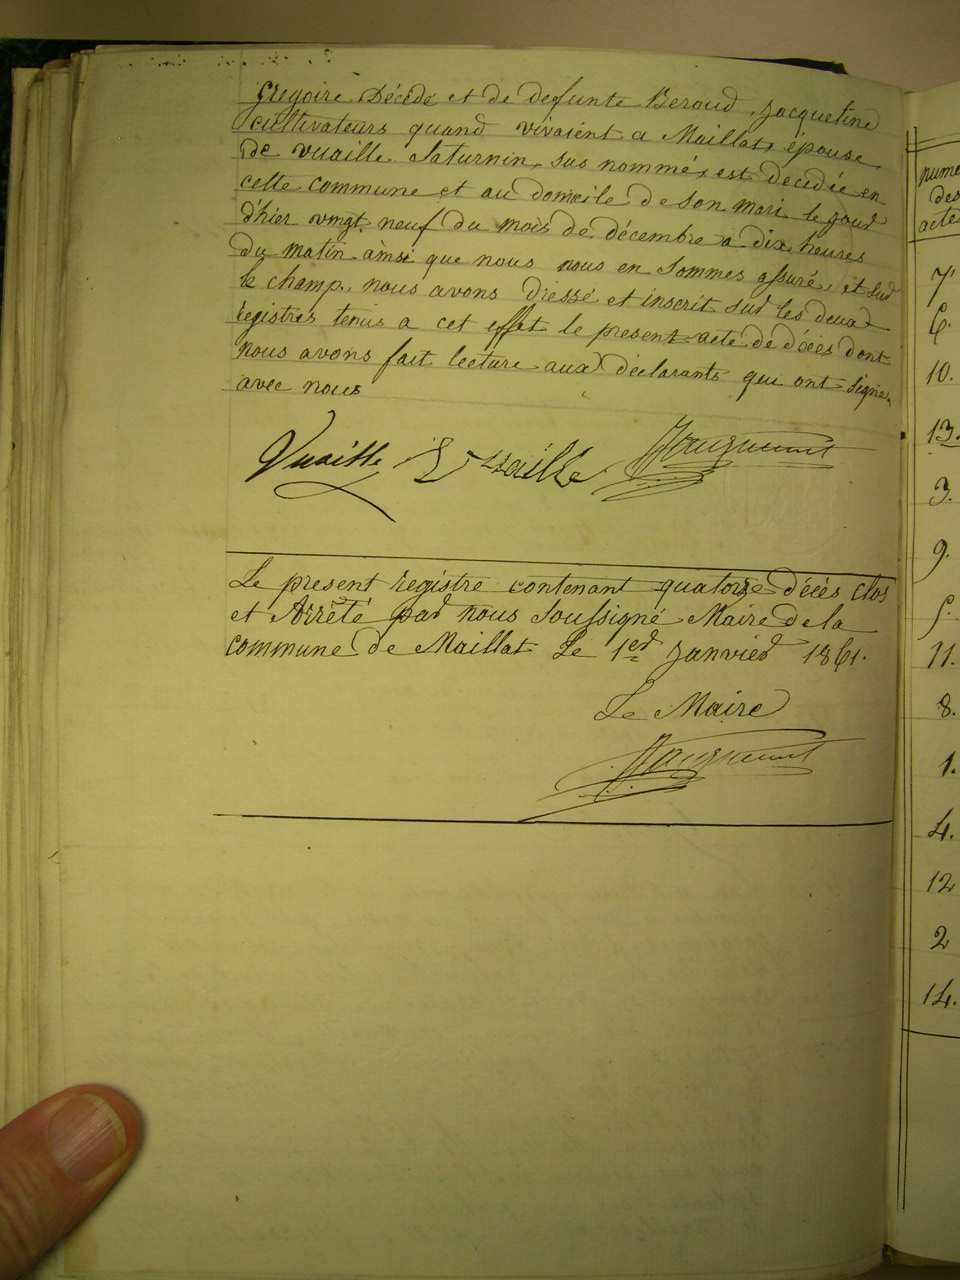 Gregoire Décédé et de defunte Beroud, Jacqueline
cultivateurs quand vivaient a Maillat, épouse
de Vuaille Saturnin, sus nommé, est decedée en
cette commune et au domicile de son mari le jour
d'hier vingt neuf du mois de décembre a dix heures
du matin ainsi que nous nous en sommes assuré, et sur
le champ, nous avons dressé et inscrit sur les deux
registres tenus a cet effet le present acte de décès dont
nous avons fait lecture aux déclarants qui ont signé
avec nous
Vuaille Vuaille
Le present registre contenant quatorze décès clos
et Arrêté par nous soussigné Maire de la
commune de Maillat Le 1er Janvier 1861.
Le Maire
numé
des
actes
7
6.
10.
13.
3.
9.
5.
11.
8.
1.
4.
12
2
14.